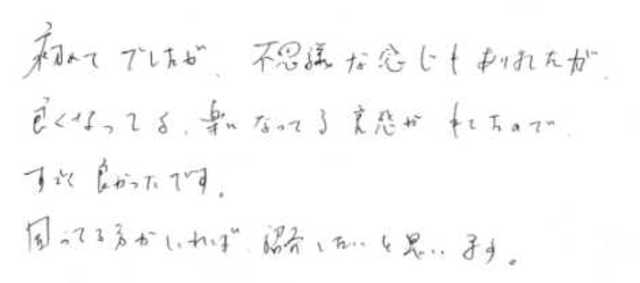 初めてでしたが、不思議な感じもありましたが、
良くなってる、楽になってる実感がもてたので、
すごく良かったです。
困ってる方がいれば、紹介したいと思います。